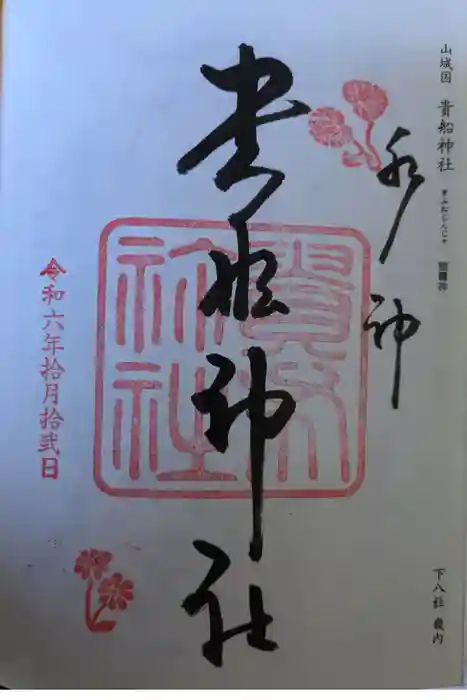 山城国 貴船神社
きふねじんじゃ
下八社 畿内
水神
貴船神社
貴船神社
令和六年拾月拾弐日